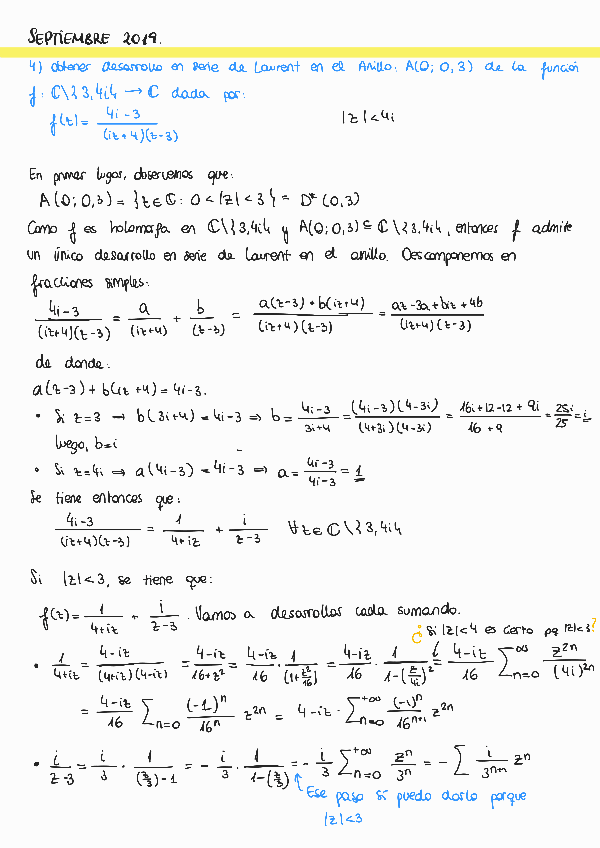 SEPTIEMBRE 2019.
4) Obtener desarrollo en serie de Laurent en el Anillo: A(0; 0,3) de la función
f: ℂ\{3,4i} → ℂ dada por:
f(z) = (4i-3)/((iz+4)(z-3))
|z|<4i
En primer lugar, observemos que:
A(0; 0,3) = {z∈ℂ: 0<|z|<3} = D*(0,3)
Como f es holomorfa en ℂ\{3,4i} y A(0; 0,3) ⊆ ℂ\{3,4i}, entonces f admite
un único desarrollo en serie de Laurent en el anillo. Descomponemos en
fracciones simples:
(4i-3)/((iz+4)(z-3)) = a/(iz+4) + b/(z-3) = (a(z-3)+b(iz+4))/((iz+4)(z-3)) = (az-3a+biz+4b)/((iz+4)(z-3))
de donde:
a(z-3)+b(iz+4) = 4i-3.
• Si z=3 → b(3i+4) = 4i-3 ⇒ b = (4i-3)/(3i+4) = ((4i-3)(4-3i))/((4+3i)(4-3i)) = (16i+12-12+9i)/(16+9) = 25i/25 = i
luego, b=i
• Si z=4i ⇒ a(4i-3) = 4i-3 ⇒ a = (4i-3)/(4i-3) = 1
Se tiene entonces que:
(4i-3)/((iz+4)(z-3)) = 1/(4+iz) + i/(z-3) ∀z∈ℂ\{3,4i}
Si |z|<3, se tiene que:
f(z) = 1/(4+iz) + i/(z-3). Vamos a desarrollar cada sumando.
¿Si |z|<4 es cierto pq |z|<3?
• 1/(4+iz) = (4-iz)/((4+iz)(4-iz)) = (4-iz)/(16+z²) = (4-iz)/16 · 1/(1+z²/16) = (4-iz)/16 · 1/(1-(z/4i)²) = (4-iz)/16 ∑_{n=0}^{∞} z^{2n}/(4i)^{2n}
= (4-iz)/16 ∑_{n=0}^{∞} (-1)^n/16^n z^{2n} = 4-iz · ∑_{n=0}^{+∞} (-1)^n/16^{n+1} z^{2n}
• i/(z-3) = i/3 · 1/((z/3)-1) = - i/3 · 1/(1-(z/3)) = - i/3 ∑_{n=0}^{+∞} z^n/3^n = - ∑ i/3^{n+1} z^n
Ese paso sí puedo darlo porque
|z|<3